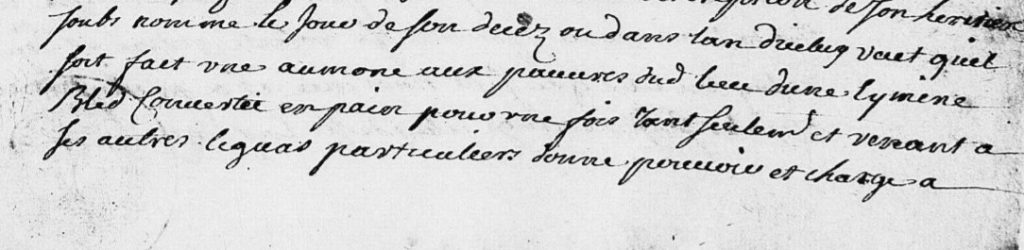 de son heritier
soubs nommé le jour de son decez ou dans lan dicluy veut quil
soit fait une aumone aux pauvres dud lieu dune lymine
Bled Convertie en pain pour une fois tant seulemt et venant a
ses autres leguas particuliers donne pouvoir et charge a